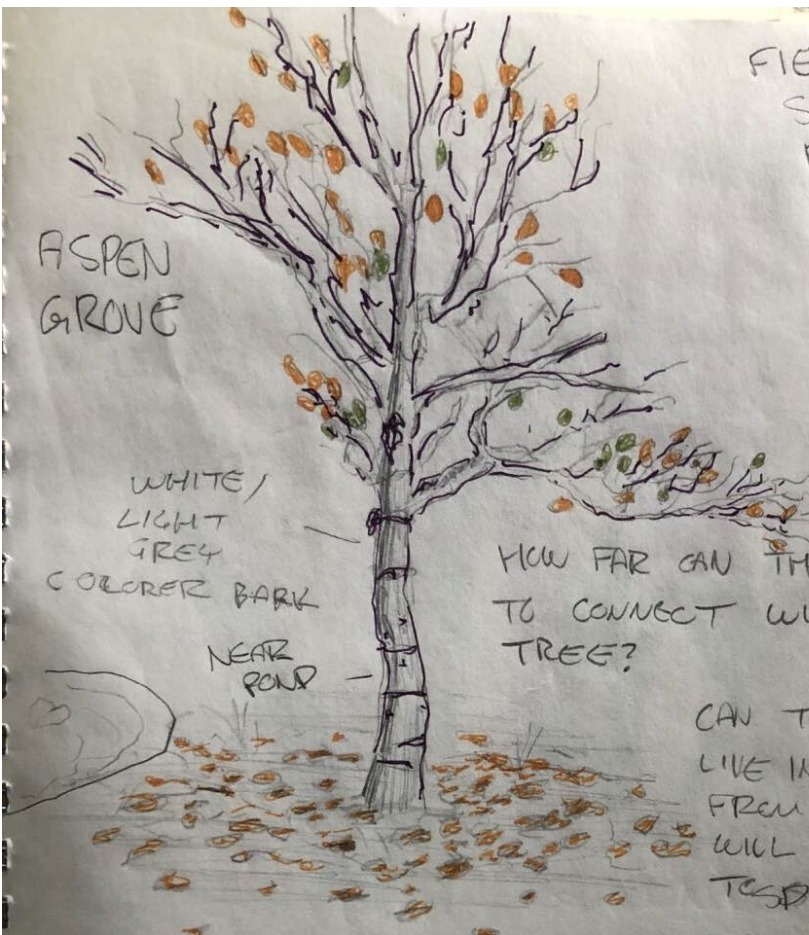 FIE
S
ASPEN
GROVE
WHITE/
LIGHT
GREY
COLORER BARK
NEAR
POND
HOW FAR CAN TH
TO CONNECT WI
TREE?
CAN T
LIVE IN
FROM
WILL
TO SP